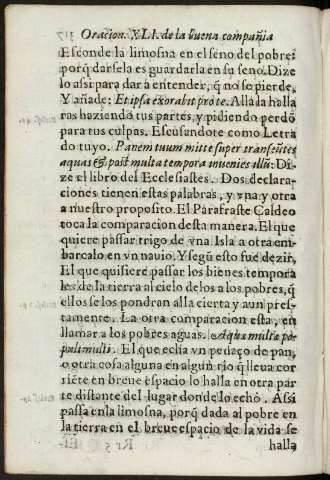 Oracion. XLI. de la buena compañia
Esconde la limosna en el seno del pobre:
porq̃ darsela es guardarla en su seno. Dize
lo assi para dar a entender, q̃ no se pierde,
Y añade: Et ipsa exorabit pro te. Alla la halla
ras haziendo tus partes, y pidiendo perdõ
para tus culpas. Escusandote como Letra
do tuyo. Panem tuum mitte super transeũtes
aquas & post multa tempora inuenies illũ: Di-
ze el libro del Ecclesiastes. Dos declara-
ciones tienen estas palabras, y vna y otra
a nuestro proposito. El Parafraste Caldeo
toca la comparacion desta manera. El que
quiere passar trigo de vna Isla a otra em-
barcalo en vn nauio. Y segũ esto fue dezir,
El que quisiere passar los bienes tempora
les de la tierra al cielo delos a los pobres, q̃
ellos se los pondran alla cierta y aun pres-
tamente. La otra comparacion esta, en
llamar a los pobres aguas. Aquæ multæ po-
puli multi. El que echa vn pedaço de pan,
o otra cosa alguna en algun rio q̃ lleua cor
riẽte en breue espacio lo halla en otra par
te distante del lugar donde lo echò. Assi
passa en la limosna, porq̃ dada al pobre en
la tierra en el breue espacio de la vida se
Rr 5
halla